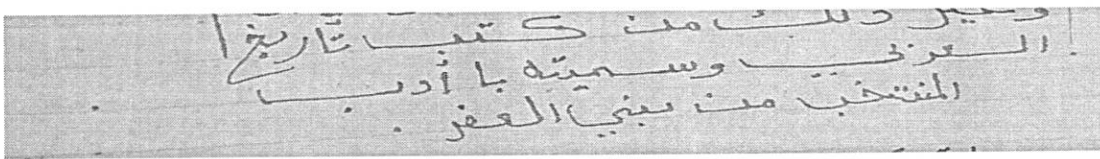 وغير ذلك من كتب تأريخ
العربي وسميته با أدب
المنتخب من بني العفر .